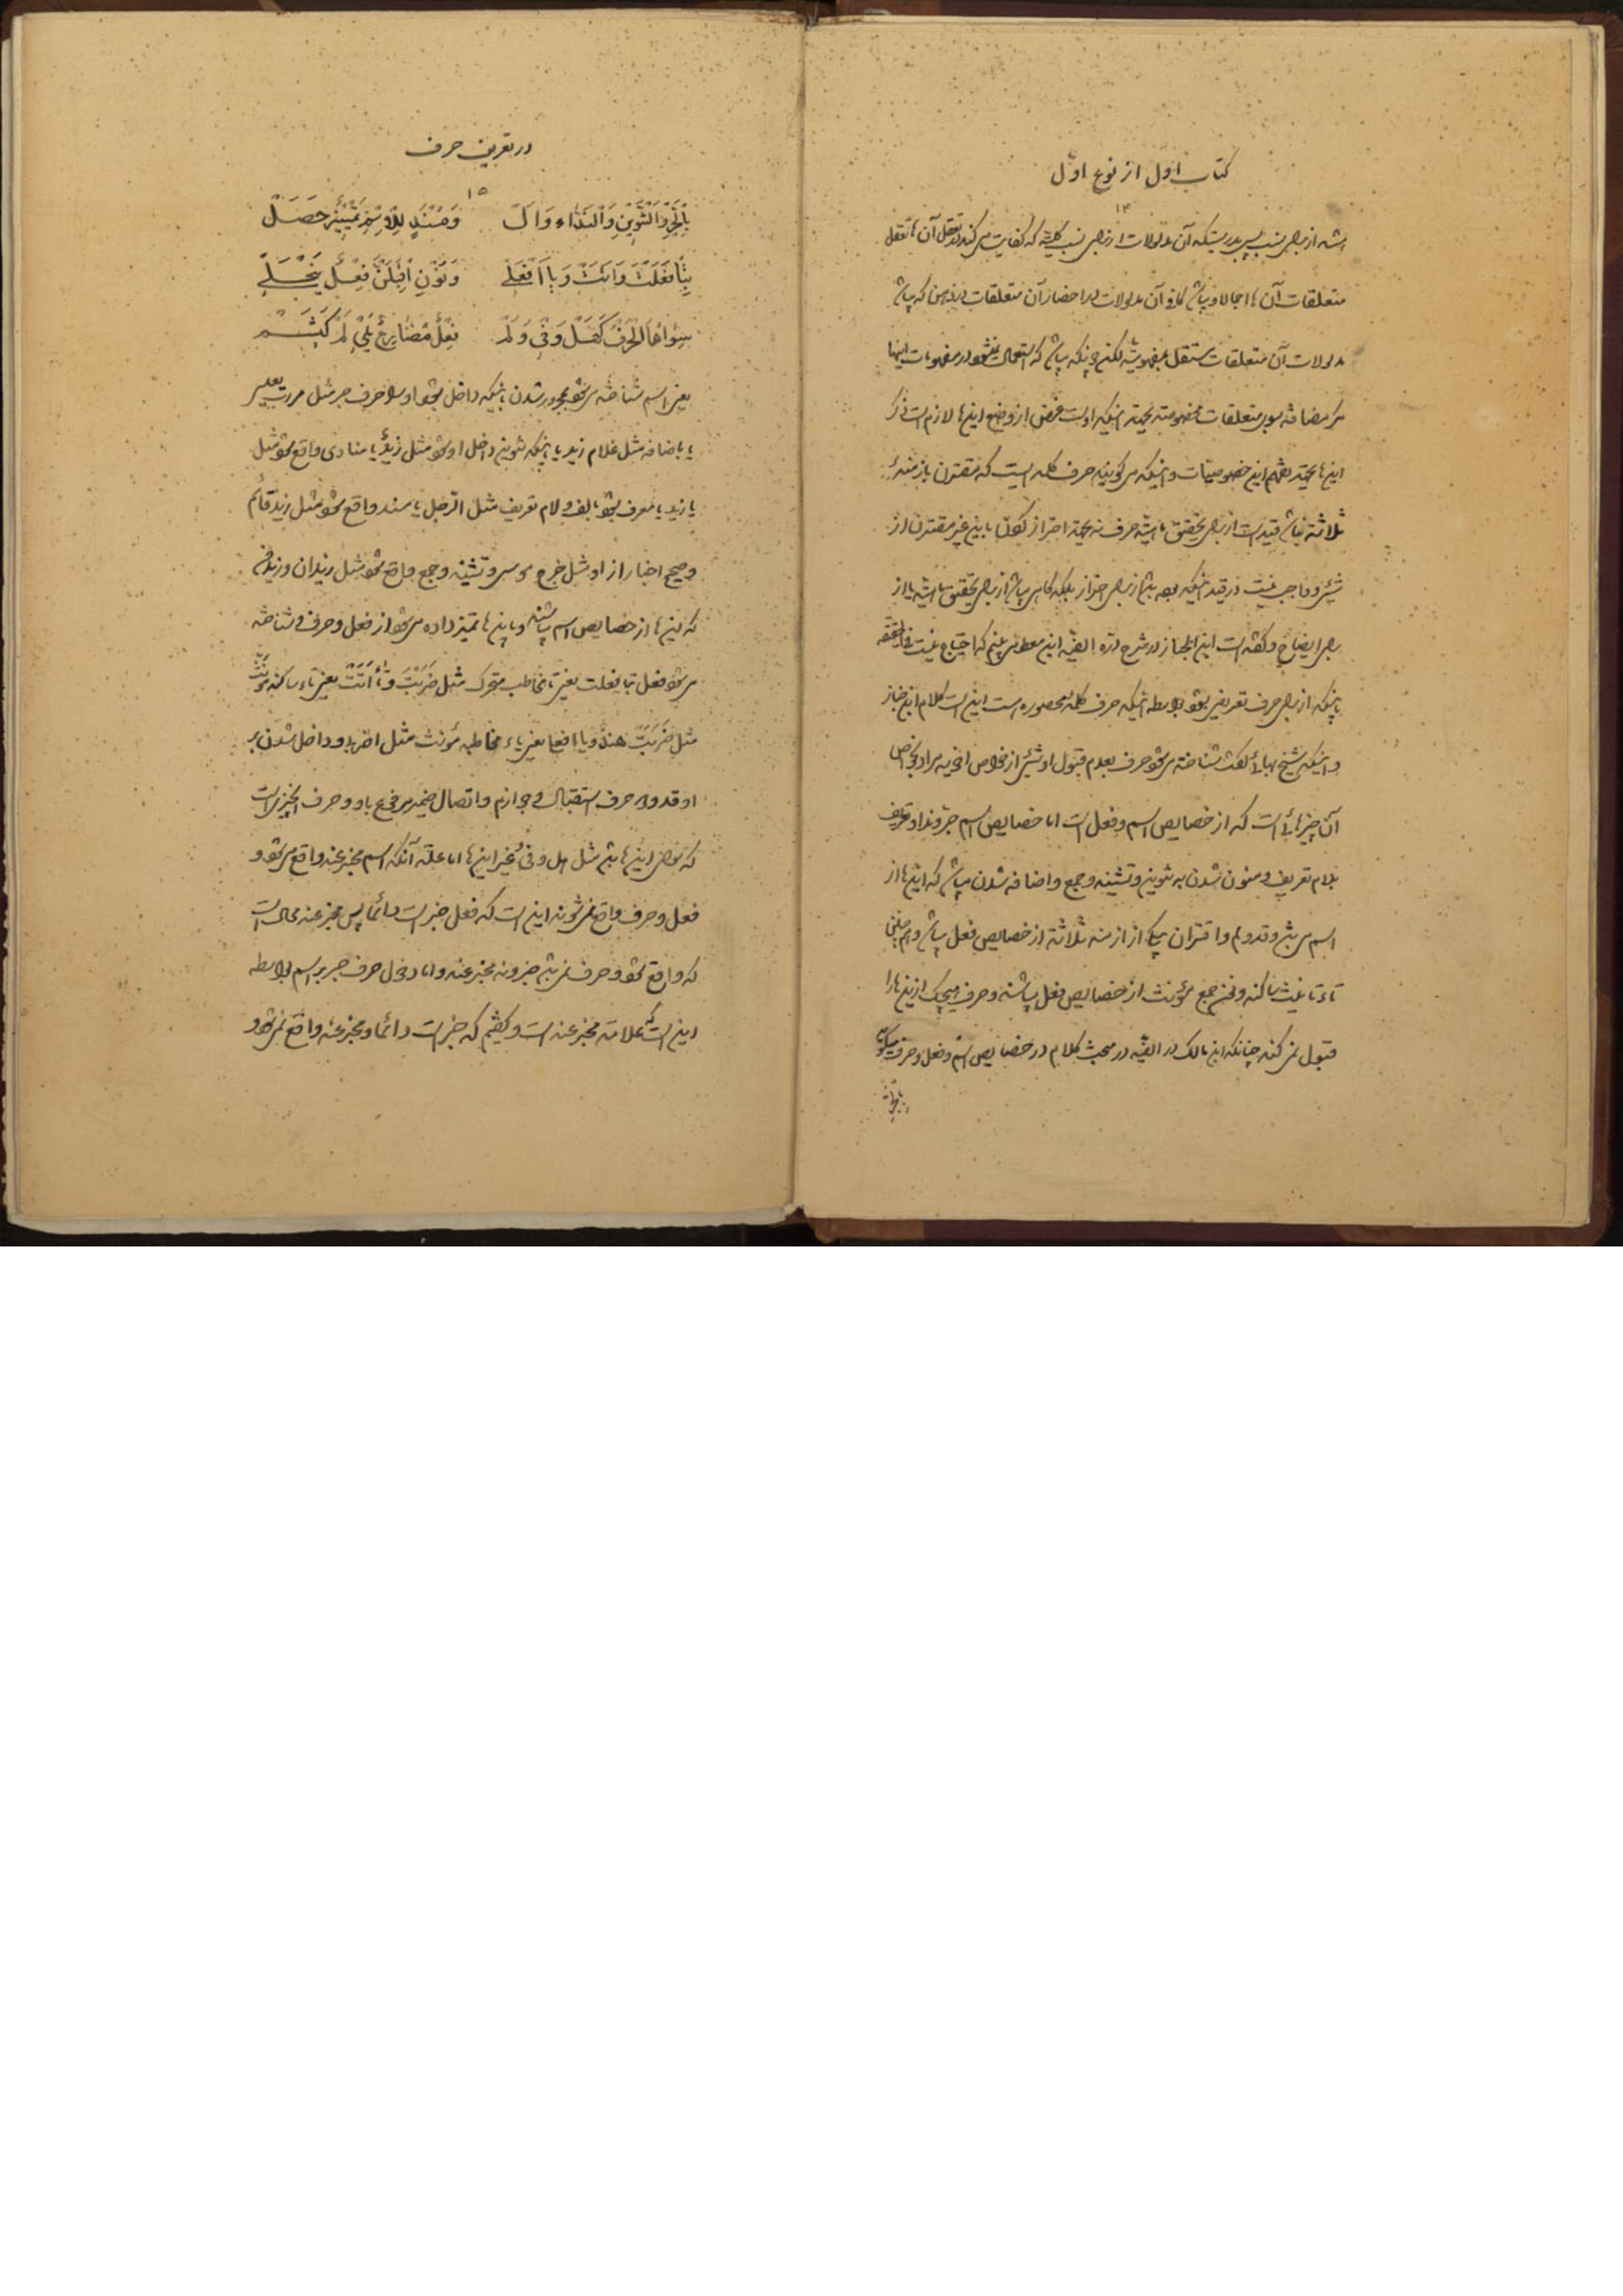 کتاب اول از نوع اوّل
۱۴
متعلقات آن ها اجمالا و آن مدلولات در احضار آن متعلقات در ذهن که
مدلولات آن متعلقات مستقل بمفهومیته لکن چونکه که استعمال نمیشود در مفهومات اینها
مگر مضافة بسوی متعلقات مخصوصة بجهة اینکه اوست غرض از وضع اینها لازم است ذکر
اینها بجهة فهم این خصوصیّات و اینکه می گویند حرف کلمه ایست که مقترن بازمنهٔ
ثلاثة نباشد قید است از برای تحقیق ماهیّة حرف نه بجهة احتراز
برای ایضاح و گفته است این الخباز در شرح درّه الفیّه ابن معطی که احتیاج نیست فی الحقیقه
باینکه از برای حرف تعریفی بشود بواسطه اینکه حرف کلمه محصوره است این است کلام ابن خباز
و اینکه شیخ بهائی گفت شناخته می شود حرف بعدم قبول او شئی از خواص اخویه مراد بخواص
آن چیزهائی است که از خصایص اسم و فعل است اما خصایص اسم جر و ندا و تعریف
بلام تعریف و منون شدن به تنوین و تثنیه و جمع و اضافه شدن میباشد که اینها از
اسم می باشد و قد و لم و اقتران بیکی از ازمنه ثلاثة از خصایص فعل میباشد و
تاء تانیث ساکنه و جمع مؤنث از خصایص فعل میباشند و حرف هیچیک از اینها را
قبول نمی کند چنانکه ابن مالک در الفیّه در مبحث کلام در خصایص اسم و فعل و حرف میگوید
در تعریف حرف
۱۵
بِالْجَرِّ وَالتَّنْوِینِ وَالنِّدَاءِ وَ اَلْ وَمُسْنَدٍ لِلْاِسْمِ تَمْیِیزٌ حَصَلْ
بِتَا فَعَلْتَ وَ اَتَتْ وَ یَا افْعَلِی وَ نُونِ اَقْبِلَنَّ فِعْلٌ یَنْجَلِی
سِوَاهُمَا الْحَرْفُ کَهَلْ وَ فِی وَ لَمْ فِعْلٌ مُضَارِعٌ یَلِی لَمْ کَیَشَمْ
یعنی اسم شناخته می شود بمجرور شدن باینکه داخل بشود او را حرف جر مثل مررت
یا باضافه مثل غلام زید یا اینکه تنوین داخل او بشود مثل زیدٌ یا منادی واقع بشود مثل
یا زید یا معرف بشود بالف و لام تعریف مثل الرّجل یا مسند واقع بشود مثل زید قائم
و صحیح اخبار از او مثل خرج موسی و تثنیه و جمع واقع بشود مثل زیدان و زیدون
که اینها از خصایص اسم میباشند و باینها تمیز داده می شود از فعل و حرف و شناخته
می شود فعل بتا فعلت یعنی تاء مخاطب متحرک مثل ضَرَبْتَ و تاء اَتَتْ یعنی تاء ساکنه مؤنّث
مثل ضَرَبَتْ هندٌ و یا افعلی یعنی یاء مخاطبه مؤنث مثل اضربی و داخل شدن بر
او قد و لم حرف استقبال و جوازم و اتصال ضمیر مرفوع باو و حرف آنچیزیست
که سوای اینها باشد مثل هل و فی و غیر اینها اما علّة آنکه اسم مخبر عنه واقع می شود و
فعل و حرف واقع نمی شوند این است که فعل خبر است دائما پس مخبر عنه محال است
که واقع شود و حرف نمی باشد خبر و نه مخبر عنه و اما دخول حرف جر بر اسم بواسطه
این است که علامة مخبر عنه است و گفتیم که خبر است دائما و مخبر عنه واقع نمی شود